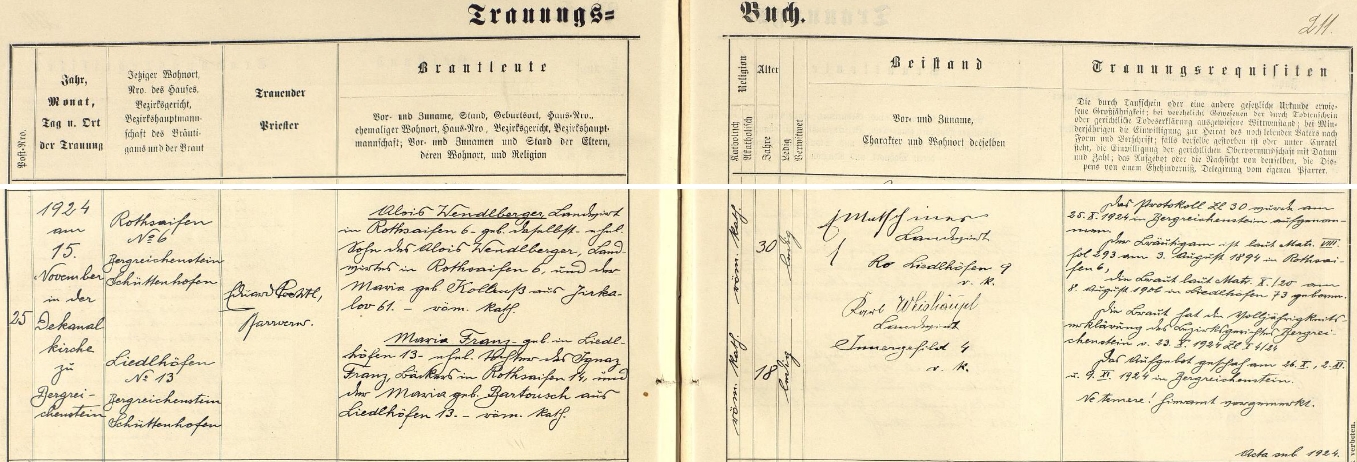 Trauungs=
Buch.
211.
Post-Nro.
Jahr,
Monat,
Tag u. Ort
der Trauung
Jetziger Wohnort,
Nro. des Hauses,
Bezirksgericht,
Bezirkshauptmann-
schaft des Bräuti-
gams und der Braut
Trauender
Priester
Brautleute
Vor- und Zuname, Stand, Geburtsort, Haus-Nro.,
ehemaliger Wohnort, Haus-Nro., Bezirksgericht, Bezirkshaupt-
mannschaft; Vor- und Zunamen und Stand der Eltern,
deren Wohnort, und Religion
Religion
Katholisch
Akatholisch
Alter
Jahre
Ledig
Verwitwet
Beistand
Vor- und Zuname,
Charakter und Wohnort desselben
Trauungsrequisiten
Die durch Taufschein oder eine andere gesetzliche Urkunde erwie-
sene Großjährigkeit; bei verehelicht Gewesenen der durch Todtenschein
oder gerichtliche Todeserklärung ausgewiesene Wittwenstand; bei Min-
derjährigen die Einwilligung zur Heirat des noch lebenden Vaters nach
Form und Vorschrift; falls derselbe gestorben ist oder unter Curatel
steht, die Einwilligung der gerichtlichen Obervormundschaft mit Datum
und Zahl; das Aufgebot oder die Nachsicht von demselben, die Dis-
pens von einem Ehehinderniß, Delegirung vom eigenen Pfarrer.
25
1924
am
15.
November
in der
Dekanal
kirche
zu
Bergrei-
chenstein
Rothsaifen
No 6
Bergreichenstein
Schüttenhofen
Liedlhöfen
No 13
Bergreichenstein
Schüttenhofen
Eduard
Pfarrverw.
Alois Wendlberger, Landwirt
in Rothsaifen 6, geb. daselbst, ehel.
Sohn des Alois Wendlberger, Land-
wirtes in Rothsaifen 6, und der
Maria geb. aus Jirka-
lov 61. - röm. kath.
Maria Franz, geb in Liedl-
höfen 13 - ehel. Tochter des Ignaz
Franz, Bäckers in Rothsaifen 14, und
der Maria geb. Bartousch aus
Liedlhöfen 13. - röm. kath.
röm. kath.
30
ledig
röm. kath
18
ledig
Landwirt
Liedlhöfen 9
r. k.
Karl Weishäupl
Landwirt
Innergefild 4
r. k.
Das Protokoll Zl 30 wurde am
25. X. 1924 in Bergreichenstein aufgenom-
men.
Der Bräutigam ist laut Matr. VIII.
fol 293 am 3. August 1894 in Rothsai-
fen 6,
die Braut laut Matr. X./20 am
8. August 1906 in Liedlhöfen 73 geboren.
Die Braut hat die Volljährigkeits
erklärung des Bezirksgerichtes Bergrei-
chenstein v. 23. X. 1924 Zl
Das Aufgebot geschah am 26. X., 2. XI.
u. 9. XI. 1924 in Bergreichenstein.
Ne temere! hieramt vorgemerkt.
Acta sub 1924.
verboten.